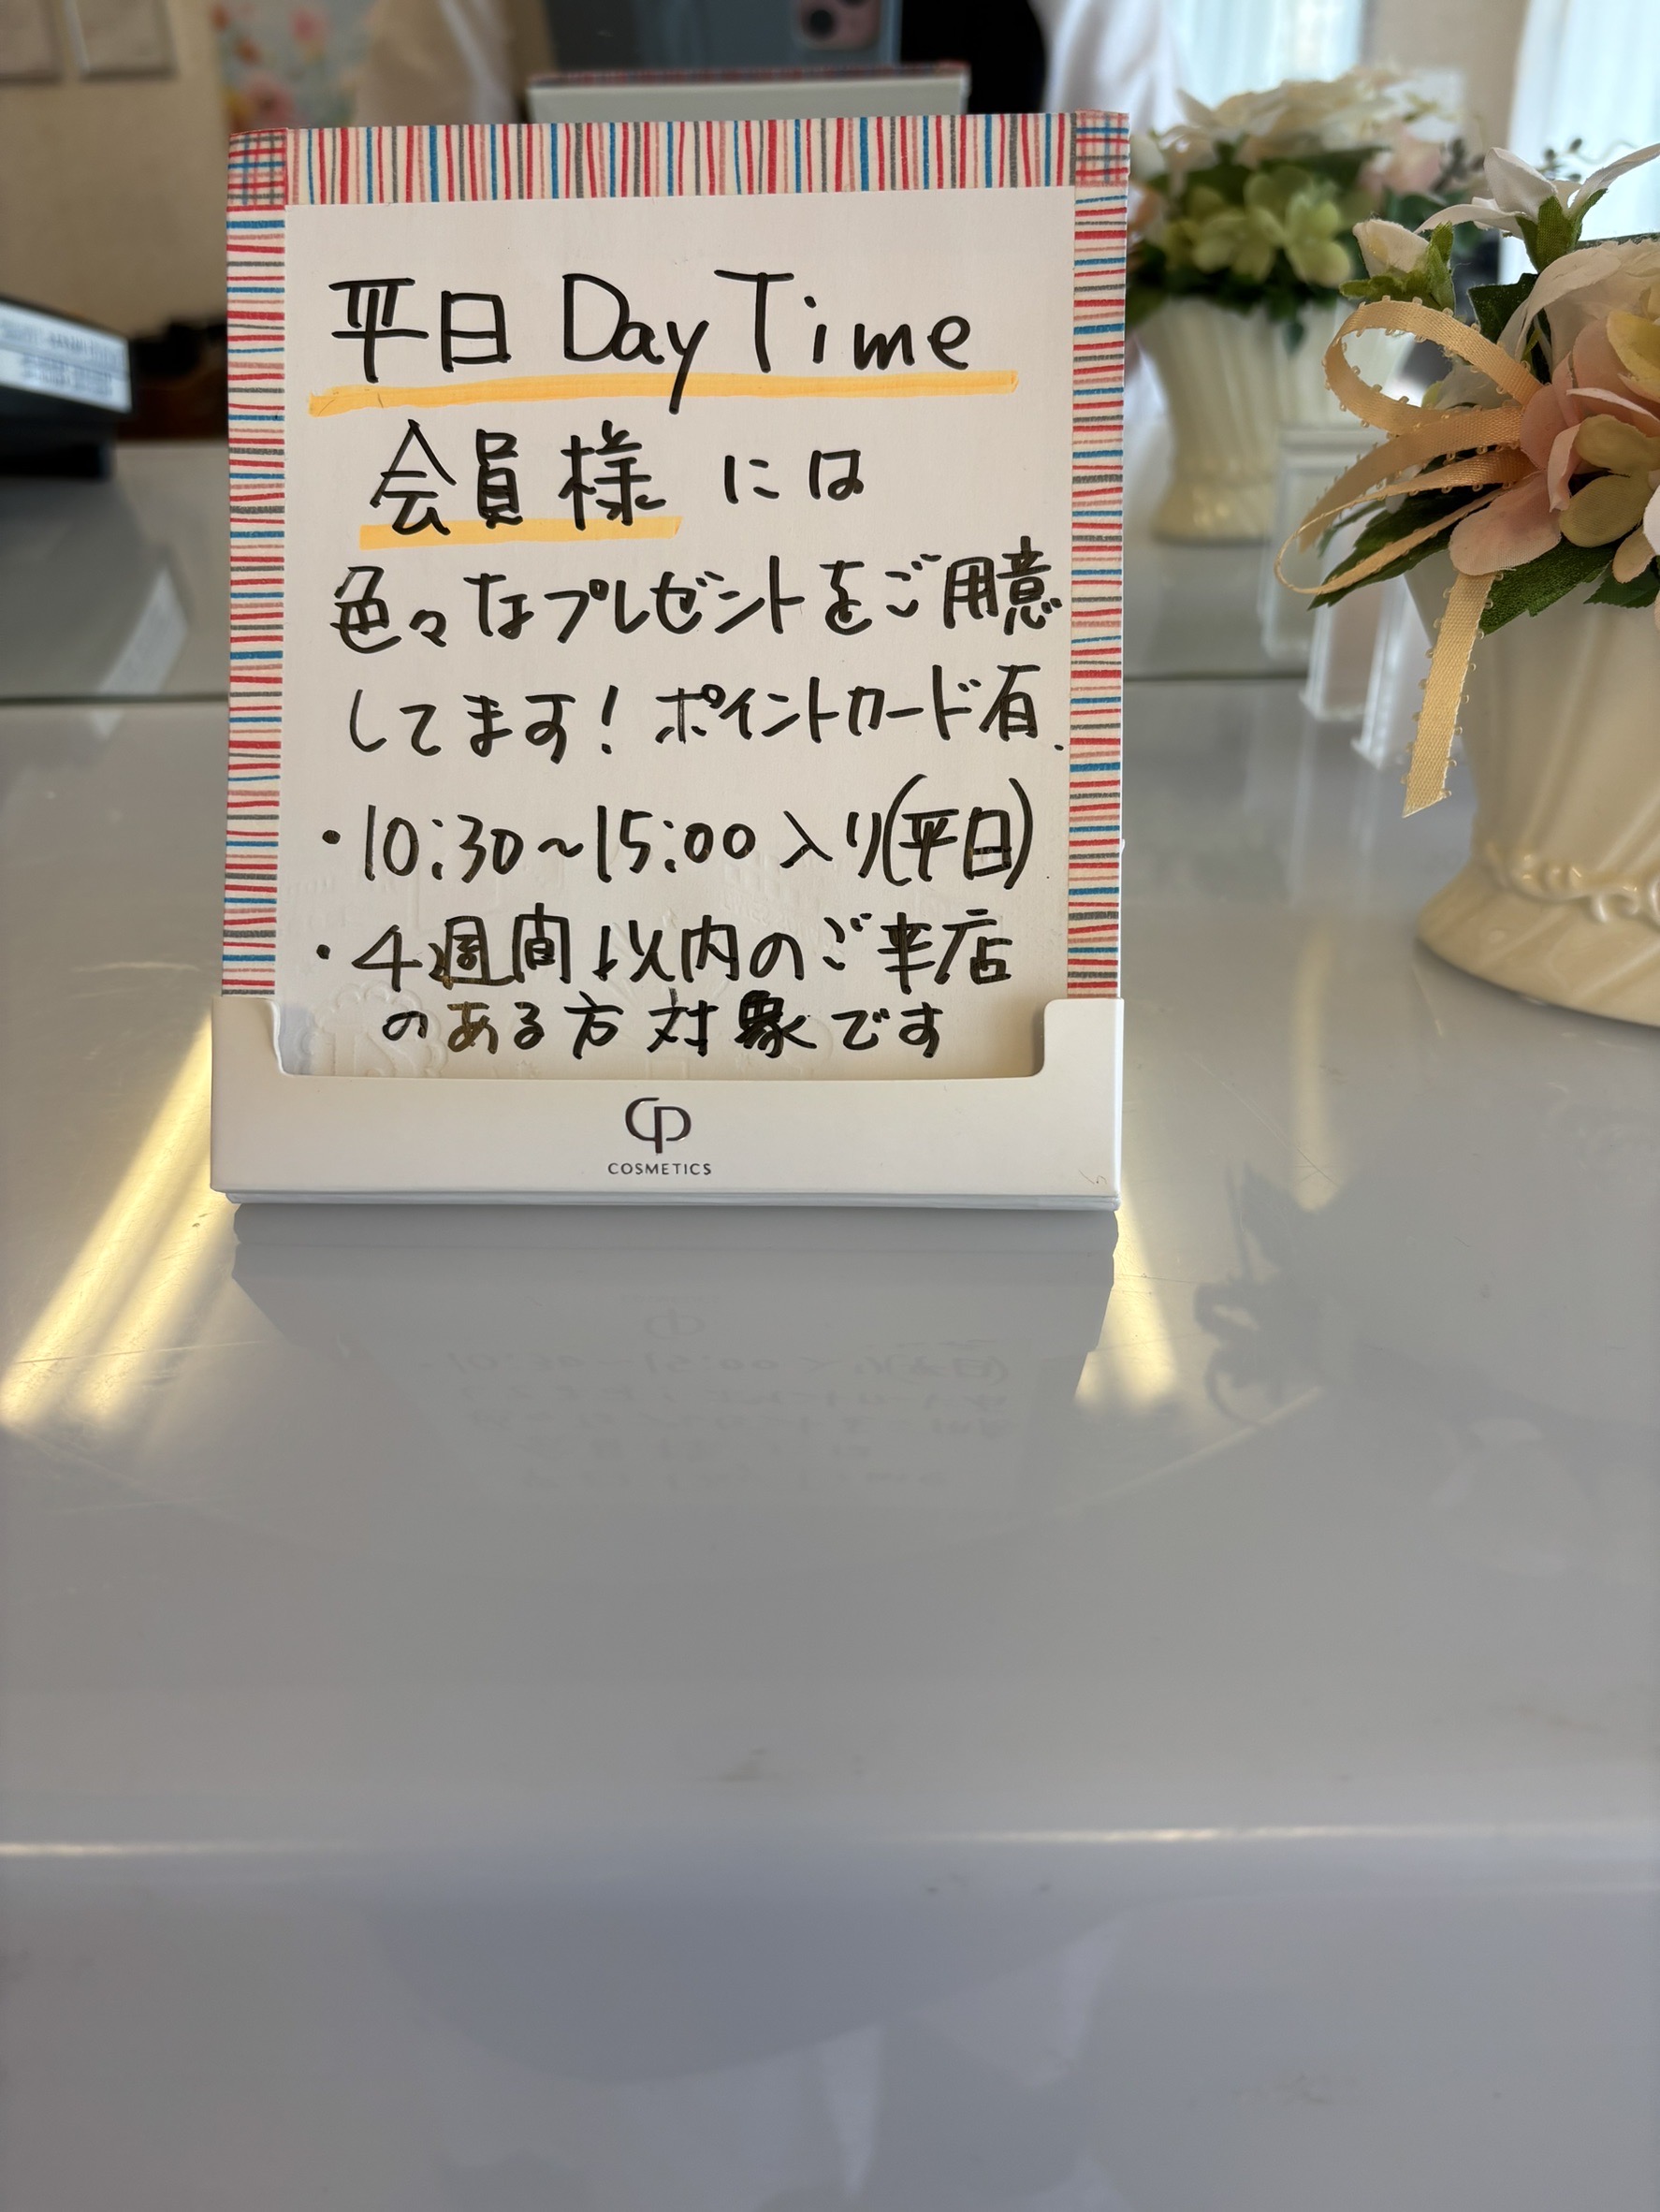 平日 Day Time
会員様 には
色々なプレゼントをご用意
してます！ ポイントカード有.
・10:30～15:00 入り(平日)
・4週間以内のご来店
のある方対象です
CP
COSMETICS